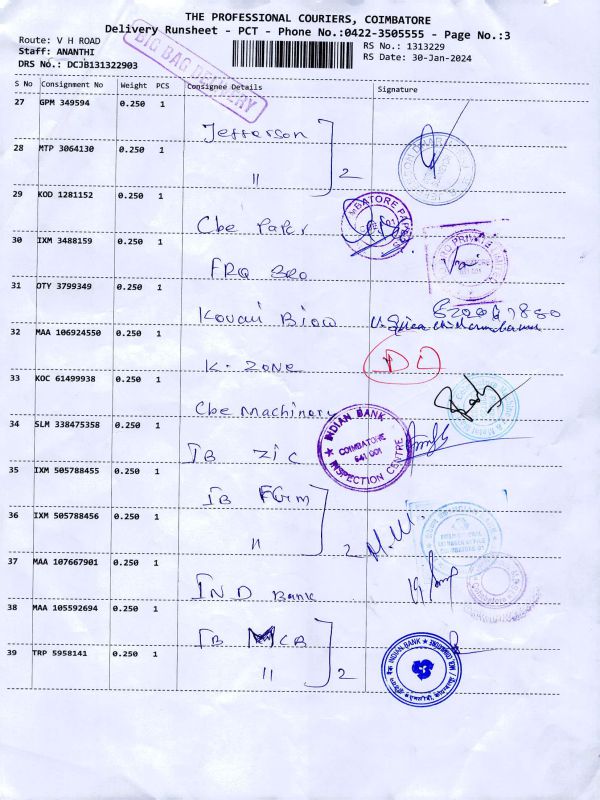 THE PROFESSIONAL COURIERS, COIMBATORE
Delivery Runsheet - PCT - Phone No.:0422-3505555 - Page No.:3
Route: V H ROAD
Staff: ANANTHI
DRS No.: DCJB131322903
RS No.: 1313229
RS Date: 30-Jan-2024
BIG BAG DELIVERY
S No Consignment No Weight PCS Consignee Details Signature
27 GPM 349594 0.250 1
Jefferson
28 MTP 3064130 0.250 1
" 2
29 KOD 1281152 0.250 1
Cbe Paper
30 IXM 3488159 0.250 1
FRQ
31 OTY 3799349 0.250 1
Kovai
32 MAA 106924550 0.250 1
K. Zone
33 KOC 61499938 0.250 1
Cbe Machinery
34 SLM 338475358 0.250 1
IB ZIC
INDIAN BANK
COIMBATORE
641 001
INSPECTION CENTRE
35 IXM 505788455 0.250 1
IB
36 IXM 505788456 0.250 1
" 2
37 MAA 107667901 0.250 1
IND Bank
38 MAA 105592694 0.250 1
IB MCB
39 TRP 5958141 0.250 1
" 2
INDIAN BANK